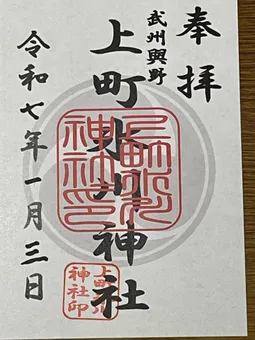 奉拝
武州興野
上町氷川神社
令和七年一月三日
上町氷川
神社印
上町氷川
神社印